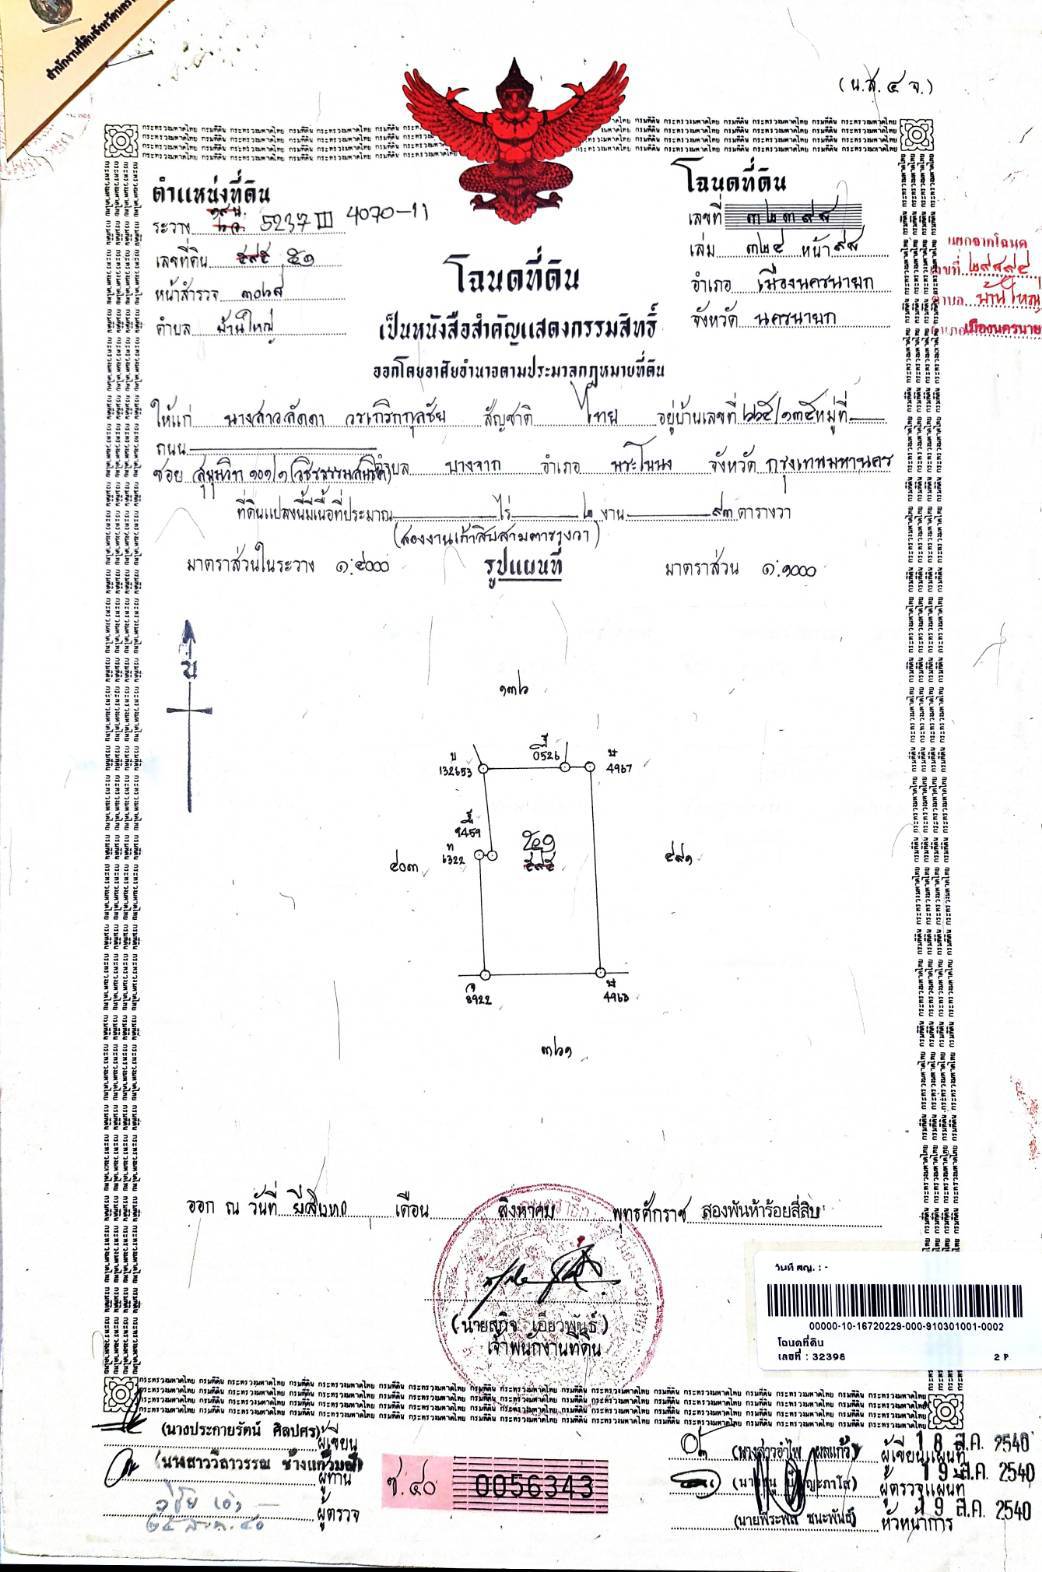 (น.ส. ๔ จ.)
ตำแหน่งที่ดิน
ระวาง 5237 III 4070-11
เลขที่ดิน ๕๙๕ ๕๑
หน้าสำรวจ ๓๐๒๘
ตำบล บ้านใหญ่
โฉนดที่ดิน
เลขที่ ๓๒๓๙๘
เล่ม ๓๒๔ หน้า ๙๘
อำเภอ เมืองนครนายก
จังหวัด นครนายก
แยกจากโฉนด
เลขที่ ๒๙๘๙๔
ตำบล บ้านใหญ่
อำเภอเมืองนครนายก
โฉนดที่ดิน
เป็นหนังสือสำคัญแสดงกรรมสิทธิ์
ออกโดยอาศัยอำนาจตามประมวลกฎหมายที่ดิน
ให้แก่ นางสาวลัดดา สัญชาติ ไทย อยู่บ้านเลขที่ ๒๒๕/๑๓๕ หมู่ที่
ถนน
ซอย สุขุมวิท ๑๐๑/๑ ตำบล บางจาก อำเภอ พระโขนง จังหวัด กรุงเทพมหานคร
ที่ดินแปลงนี้มีเนื้อที่ประมาณ ไร่ ๒ งาน ๙๓ ตารางวา
(สองงานเก้าสิบสามตารางวา)
มาตราส่วนในระวาง ๑:๔๐๐๐ รูปแผนที่ มาตราส่วน ๑:๑๐๐๐
น
๑๓๖
132653
0526
4967
9459
6322
๕๑
๕๙๕
๔๐๓
๕๙๑
8922
4968
๓๖๑
ออก ณ วันที่ ยี่สิบหก เดือน สิงหาคม พุทธศักราช สองพันห้าร้อยสี่สิบ
(นายสุกิจ เอี่ยวพันธ์)
เจ้าพนักงานที่ดิน
วันที่ สญ. : -
00000-10-16720229-000-910301001-0002
โฉนดที่ดิน
เลขที่ : 32398 2 P
(นางประกายรัตน์ ศิลปศร) ผู้เขียน
(นางสาววิลาวรรณ ช้างแก้วมณี) ผู้ทาน
ผู้ตรวจ
๒๕ ส.ค. ๔๐
ช. ๔๐ 0056343
(นางสาวอำไพ ผลแก้ว) ผู้เขียนแผนที่ 18 ส.ค. 2540
ผู้ตรวจแผนที่ 19 ส.ค. 2540
(นายพีระพล ชนะพันธ์) หัวหน้าการ 19 ส.ค. 2540